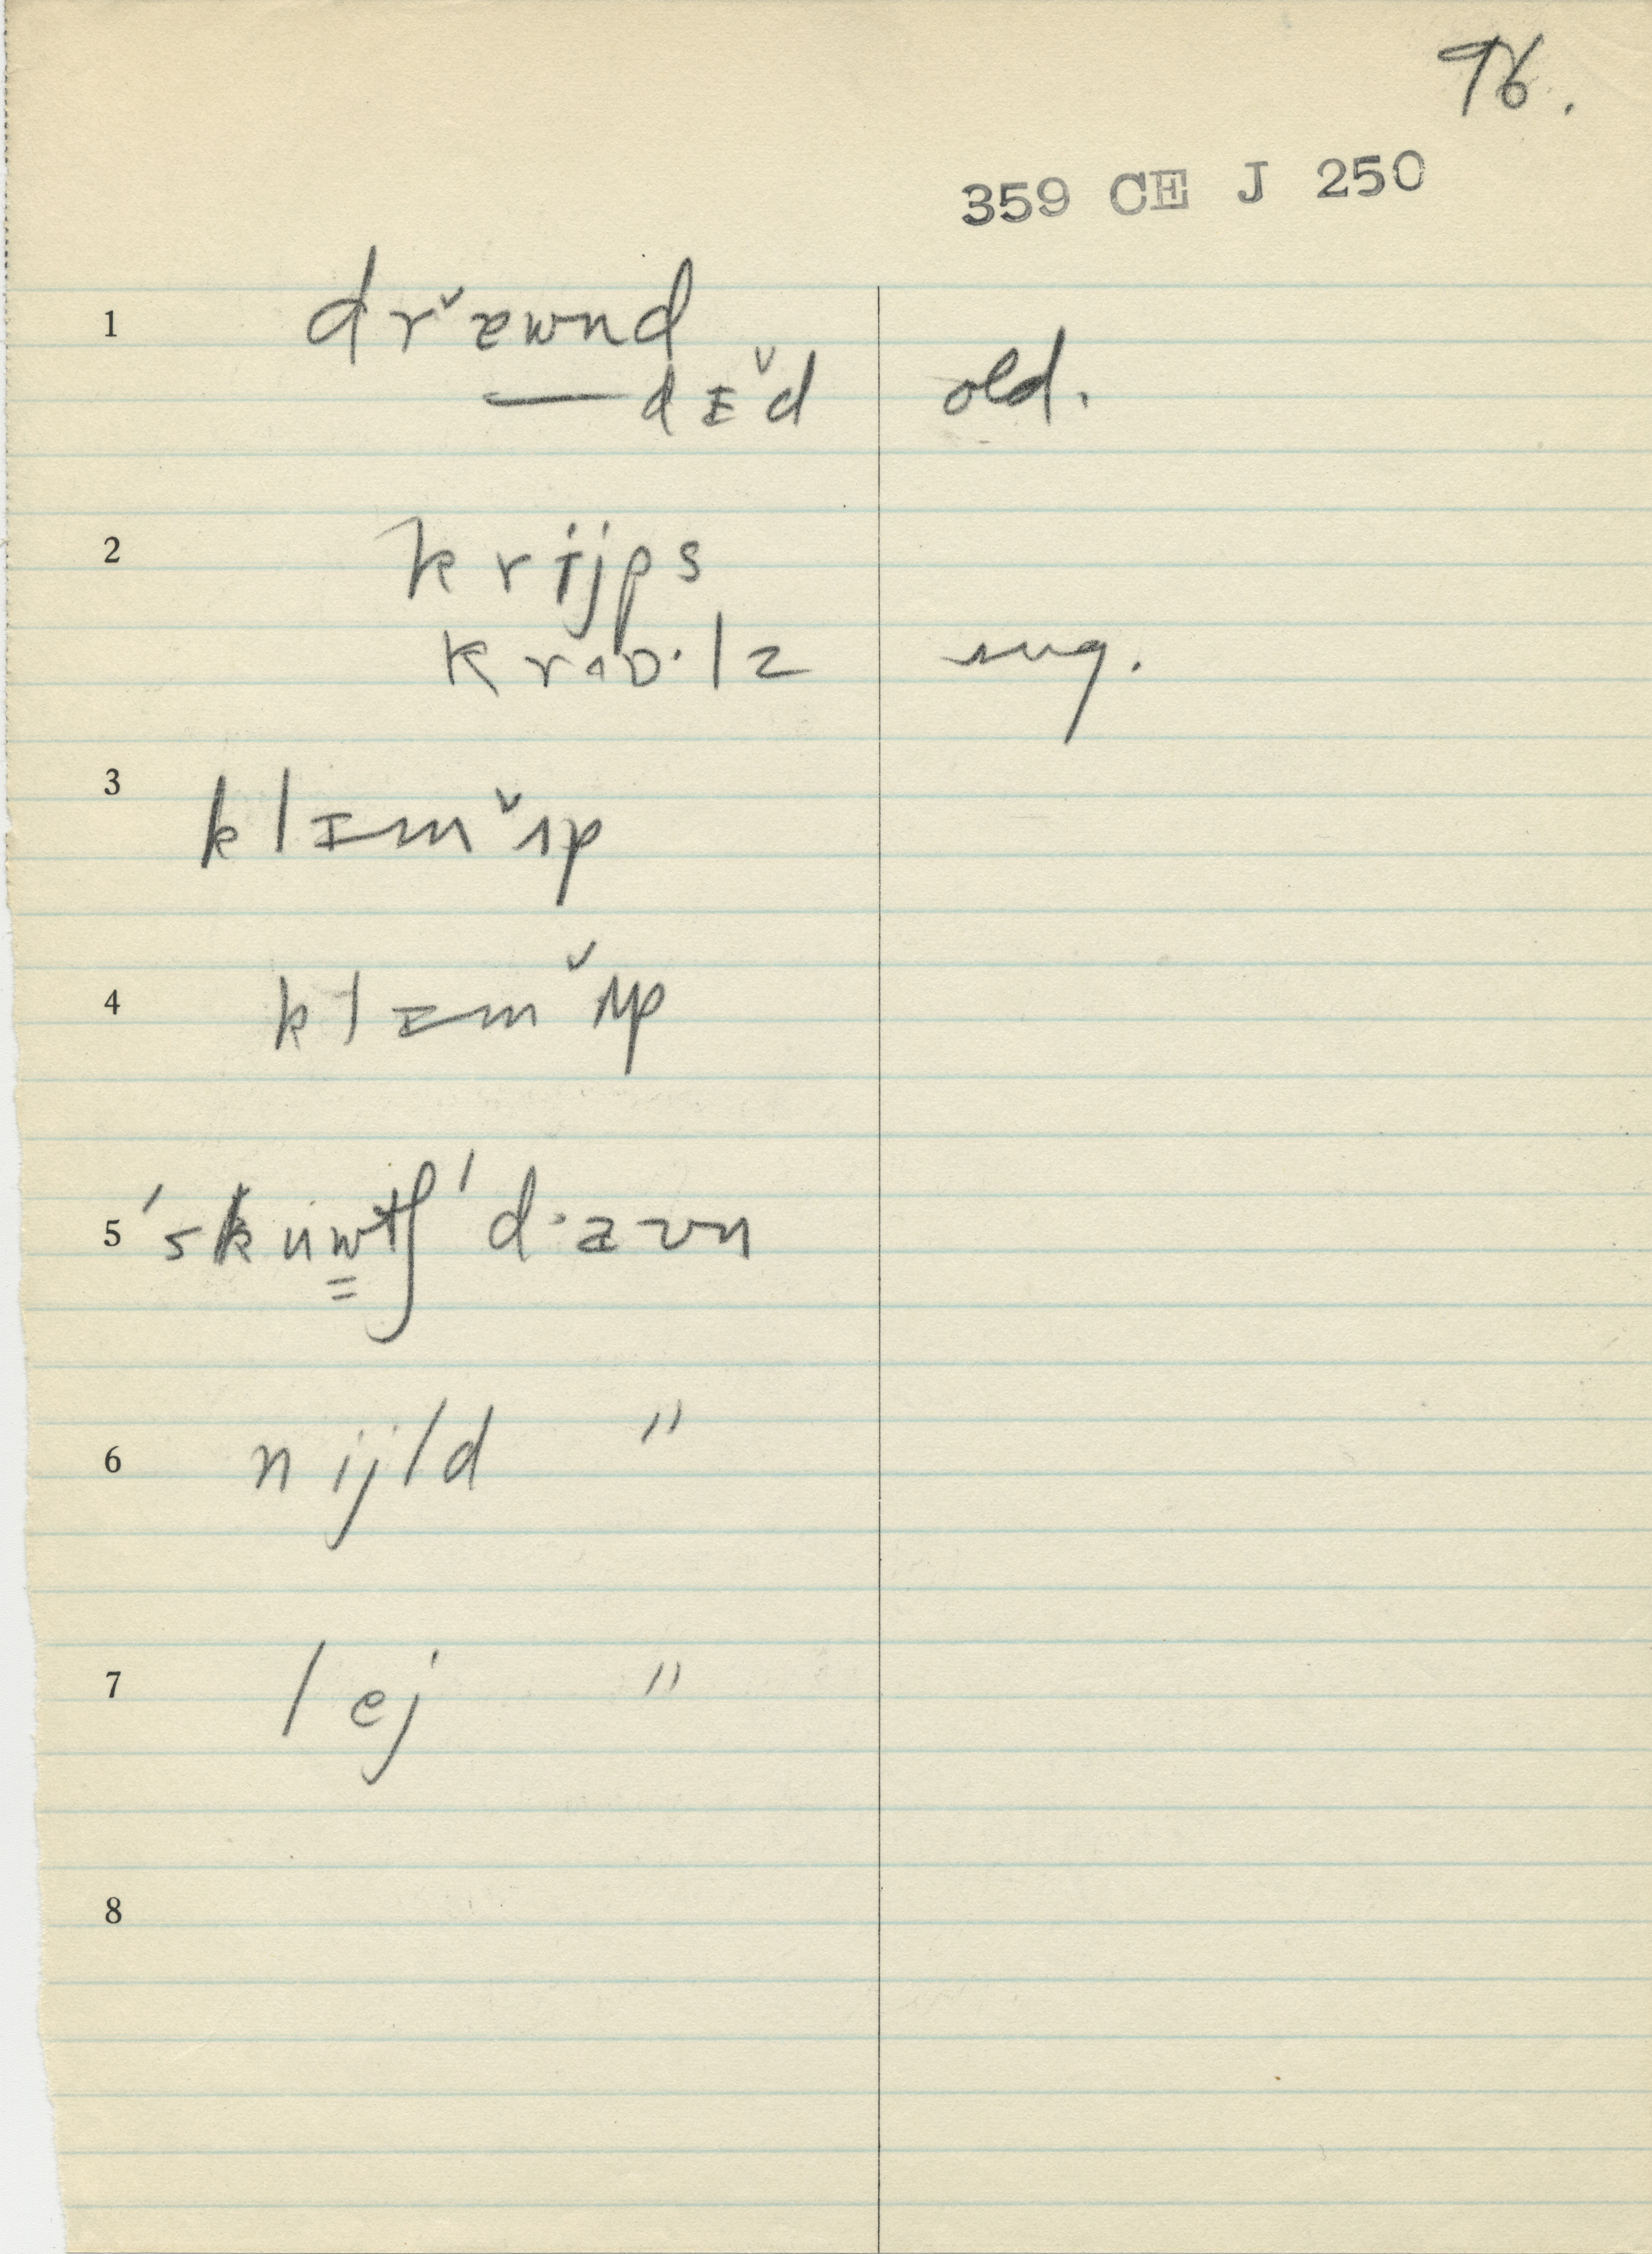 96.
359 CE J 250
1 drˇæwnd
—dɪˇd old.
2 krijps
krɑɒ·lz sug.
3 klɪmˇʌp
4 klɪmˇʌp
5 ˈskuwtʃ ˈd·aʊn
6 nijld "
7 lej "
8